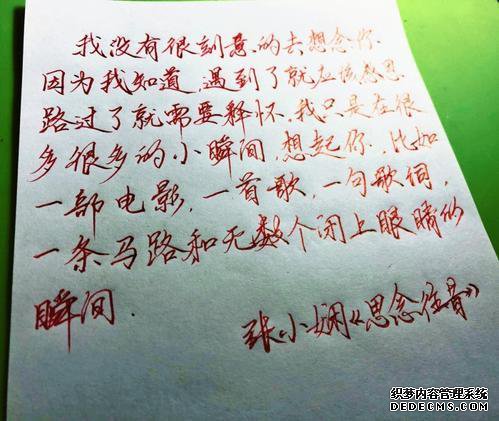 我没有很刻意的去想念你.
因为我知道,遇到了就应该感恩
路过了就需要释怀.我只是在很
多很多的小瞬间,想起你.比如
一部电影,一首歌,一句歌词,
一条马路和无数个闭上眼睛的
瞬间.
张小娴《思念往昔》
织梦内容管理系统
DEDECMS.COM